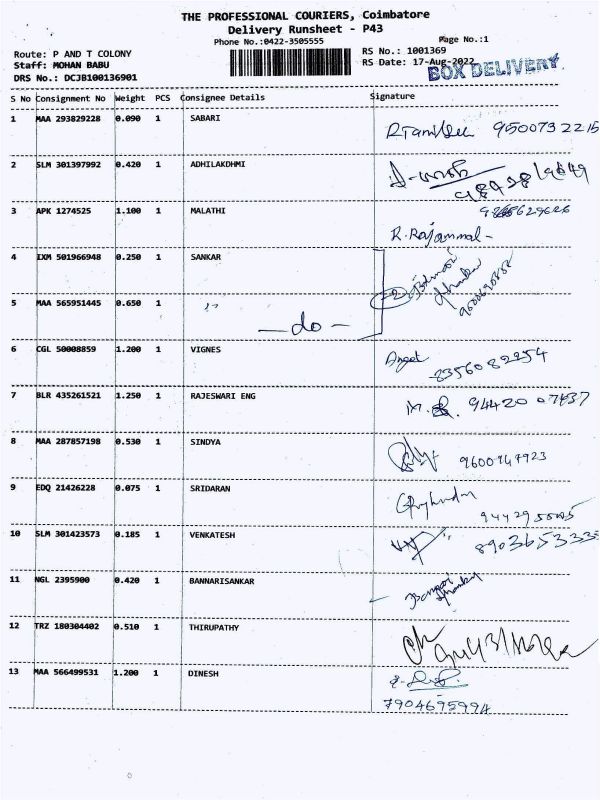 THE PROFESSIONAL COURIERS, Coimbatore
Delivery Runsheet - P43
Phone No.:0422-3505555 Page No.:1
Route: P AND T COLONY RS No.: 1001369
Staff: MOHAN BABU RS Date: 17-Aug-2022
DRS No.: DCJB100136901 BOX DELIVERY
S No Consignment No Weight PCS Consignee Details Signature
1 MAA 293829228 0.090 1 SABARI 9500732215
2 SLM 301397992 0.420 1 ADHILAKDHMI
3 APK 1274525 1.100 1 MALATHI
R. Rajammal
4 IXM 501966948 0.250 1 SANKAR
5 MAA 565951445 0.650 1
— do —
6 CGL 50008859 1.200 1 VIGNES Angel
8356082254
7 BLR 435261521 1.250 1 RAJESWARI ENG 94420 07437
8 MAA 287857198 0.530 1 SINDYA 9600747923
9 EDQ 21426228 0.075 1 SRIDARAN
10 SLM 301423573 0.185 1 VENKATESH 8903653335
11 NGL 2395900 0.420 1 BANNARISANKAR
12 TRZ 180304402 0.510 1 THIRUPATHY
13 MAA 566499531 1.200 1 DINESH
7904695994